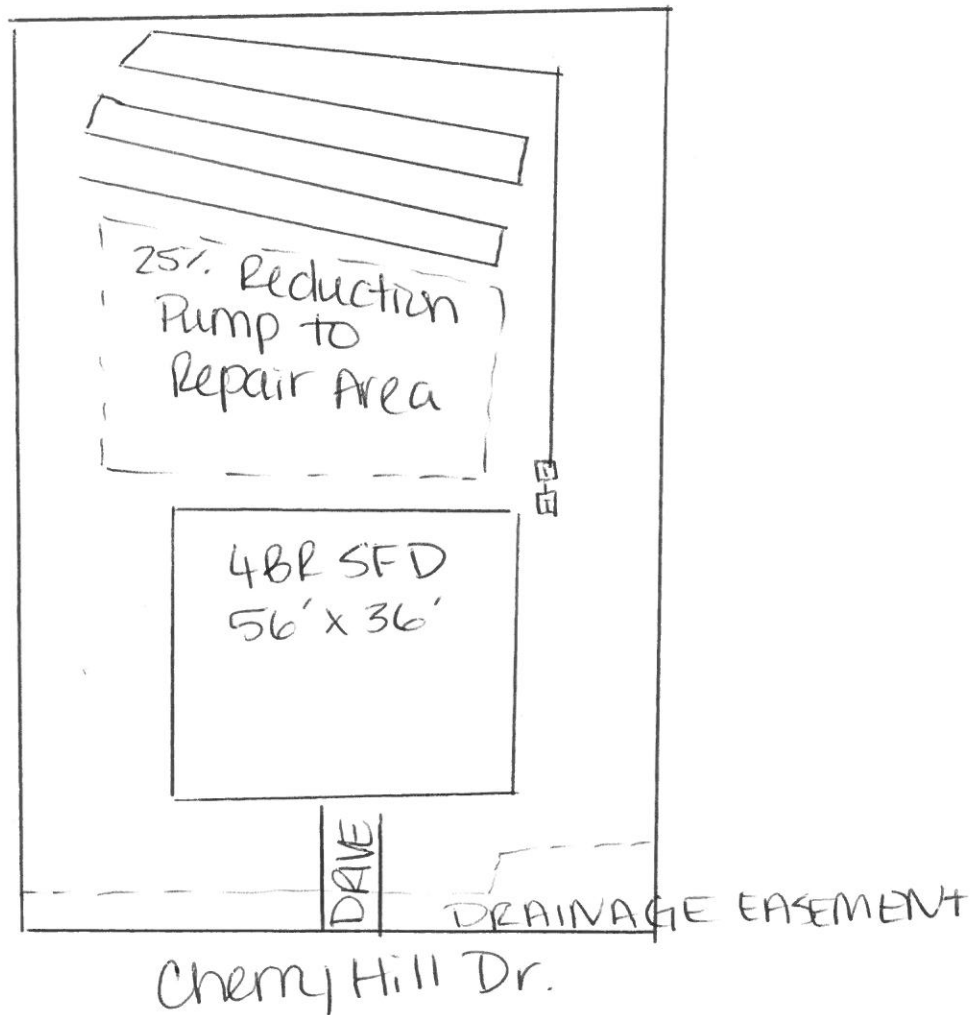 25% Reduction
Pump to
Repair Area
4BR SFD
56' x 36'
DRIVE
DRAINAGE EASEMENT
Cherry Hill Dr.